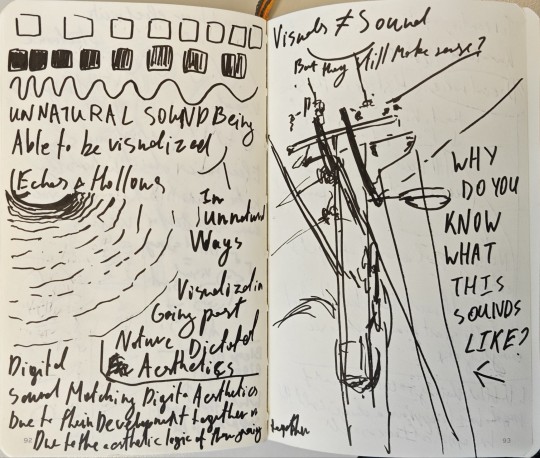 UNNATURAL SOUND Being
Able to be visualized
(Echos & Hollows
In
unnatural
Ways
Visualization
Going past
Nature Dictated
Aesthetics
Digital
Sound Matching Digital Aesthetics
Due to their Development together or
Due to the aesthetic logic of them going together
92
Visuals ≠ Sound
But they still Make sense?
WHY
DO YOU
KNOW
WHAT
THIS
SOUNDS
LIKE?
93